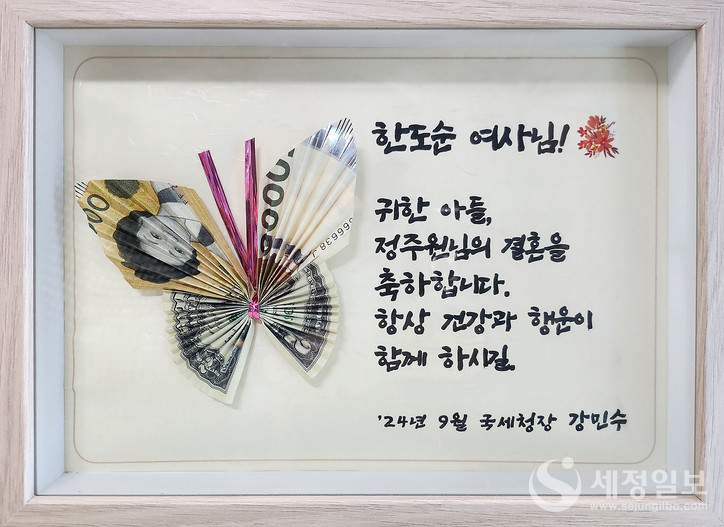 한도순 여사님!
귀한 아들,
정주원님의 결혼을
축하합니다.
항상 건강과 행운이
함께 하시길.
'24년 9월 국세청장 강민수
세정일보
www.sejungilbo.com